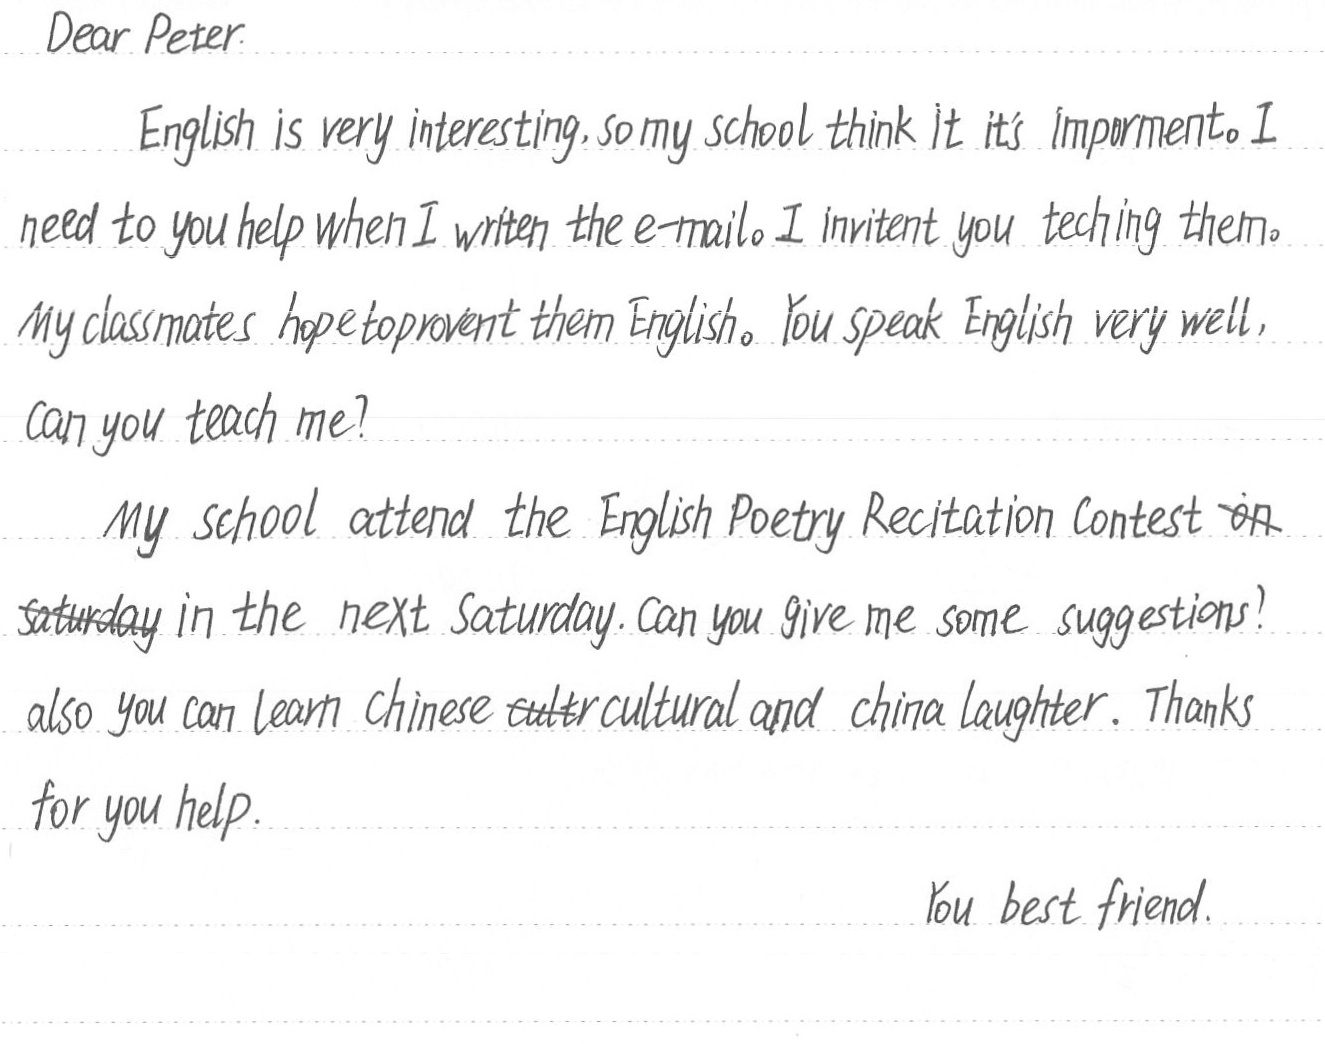 Dear Peter.
English is very interesting, so my school think it it's imporment。I
need to you help when I writen the e-mail。I invitent you teching them。
My classmates hope to provent them English。You speak English very well,
Can you teach me?
My school attend the English Poetry Recitation Contest on
saturday in the next Saturday. Can you give me some suggestions?
also you can learn Chinese cultr cultural and china laughter. Thanks
for you help.
You best friend.